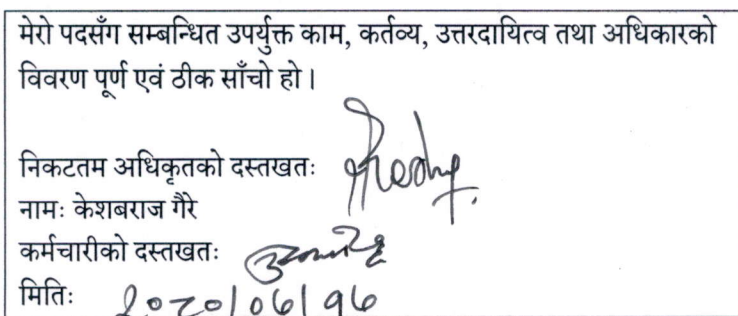 मेरो पदसँग सम्बन्धित उपर्युक्त काम, कर्तव्य, उत्तरदायित्व तथा अधिकारको
विवरण पूर्ण एवं ठीक साँचो हो।
निकटतम अधिकृतको दस्तखतः
नामः केशबराज गैरे
कर्मचारीको दस्तखतः
मितिः